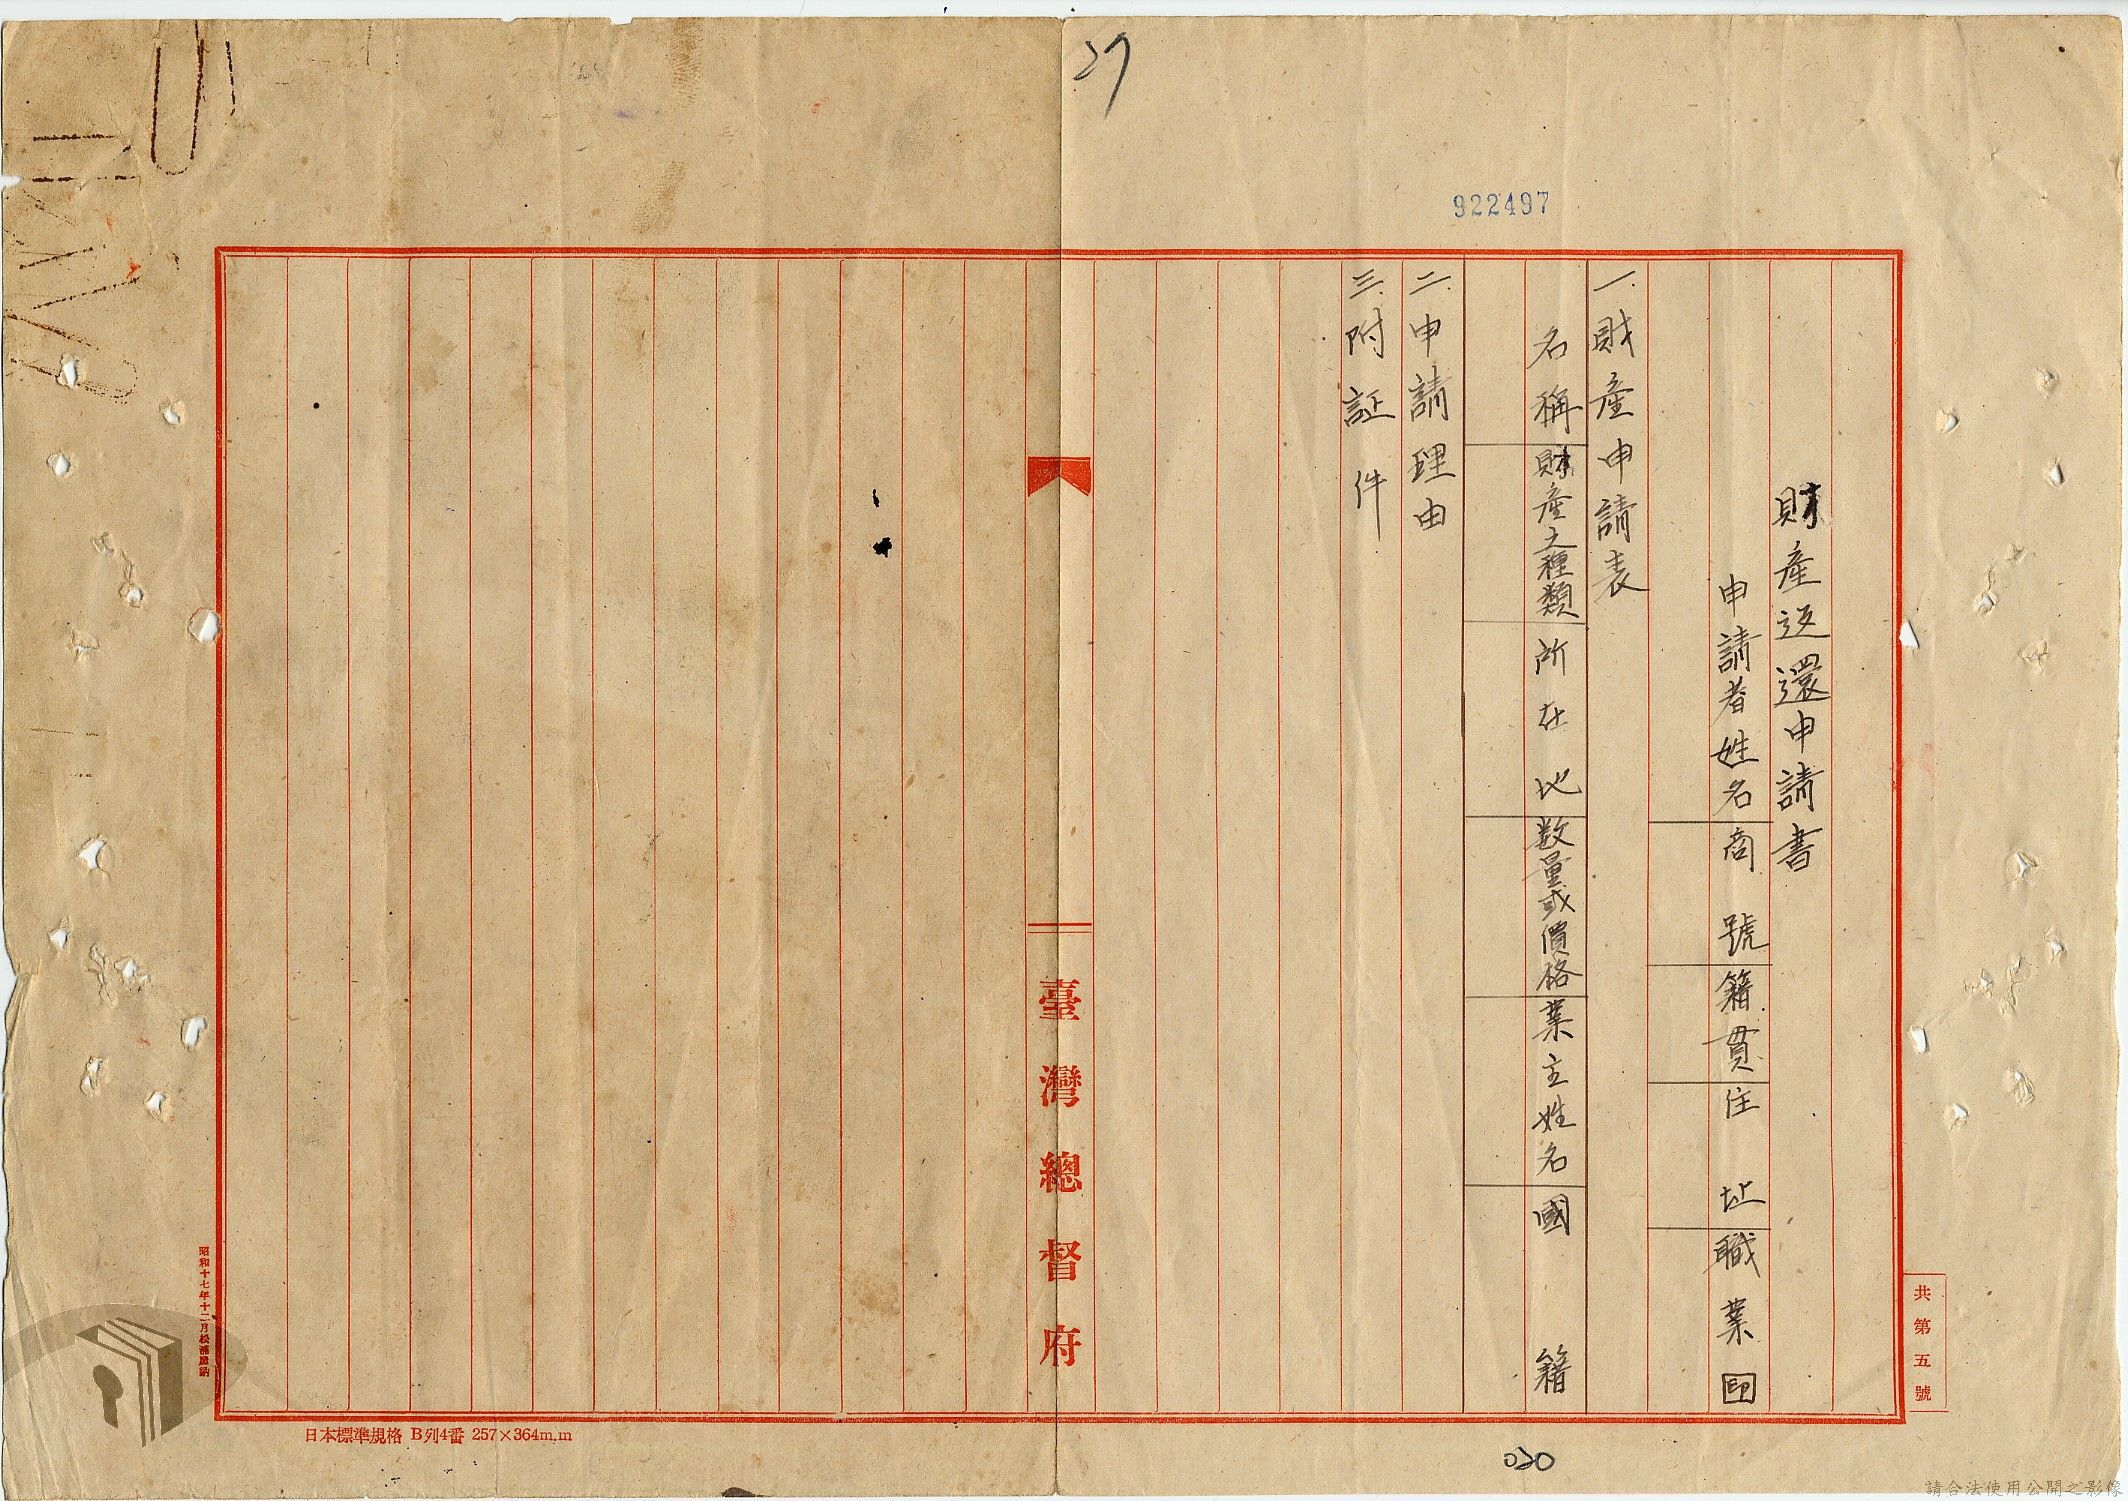 27
922497
財產返還申請書
申請者姓名 商號 籍貫 住址 職業 印
一.財產申請表
名稱 財產之種類 所在地 数量或價格 業主姓名 國籍
二.申請理由
三.附証件
臺灣總督府
共第五號
昭和十七年十二月松浦屋納
日本標準規格 B列4番 257×364m.m
020
請合法使用公開之影像